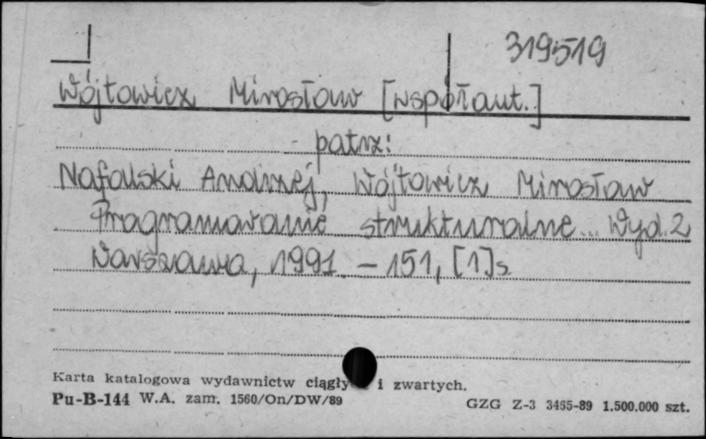 319519
Wójtowicz Mirosław [współaut.]
patrz:
Nafalski Andrzej, Wójtowicz Mirosław
Programowanie strukturalne... Wyd. 2
Warszawa, 1991. – 151, [1] s
Karta katalogowa wydawnictw ciągły i zwartych.
Pu-B-144 W.A. zam. 1560/On/DW/89
GZG Z-3 3465-89 1.500.000 szt.